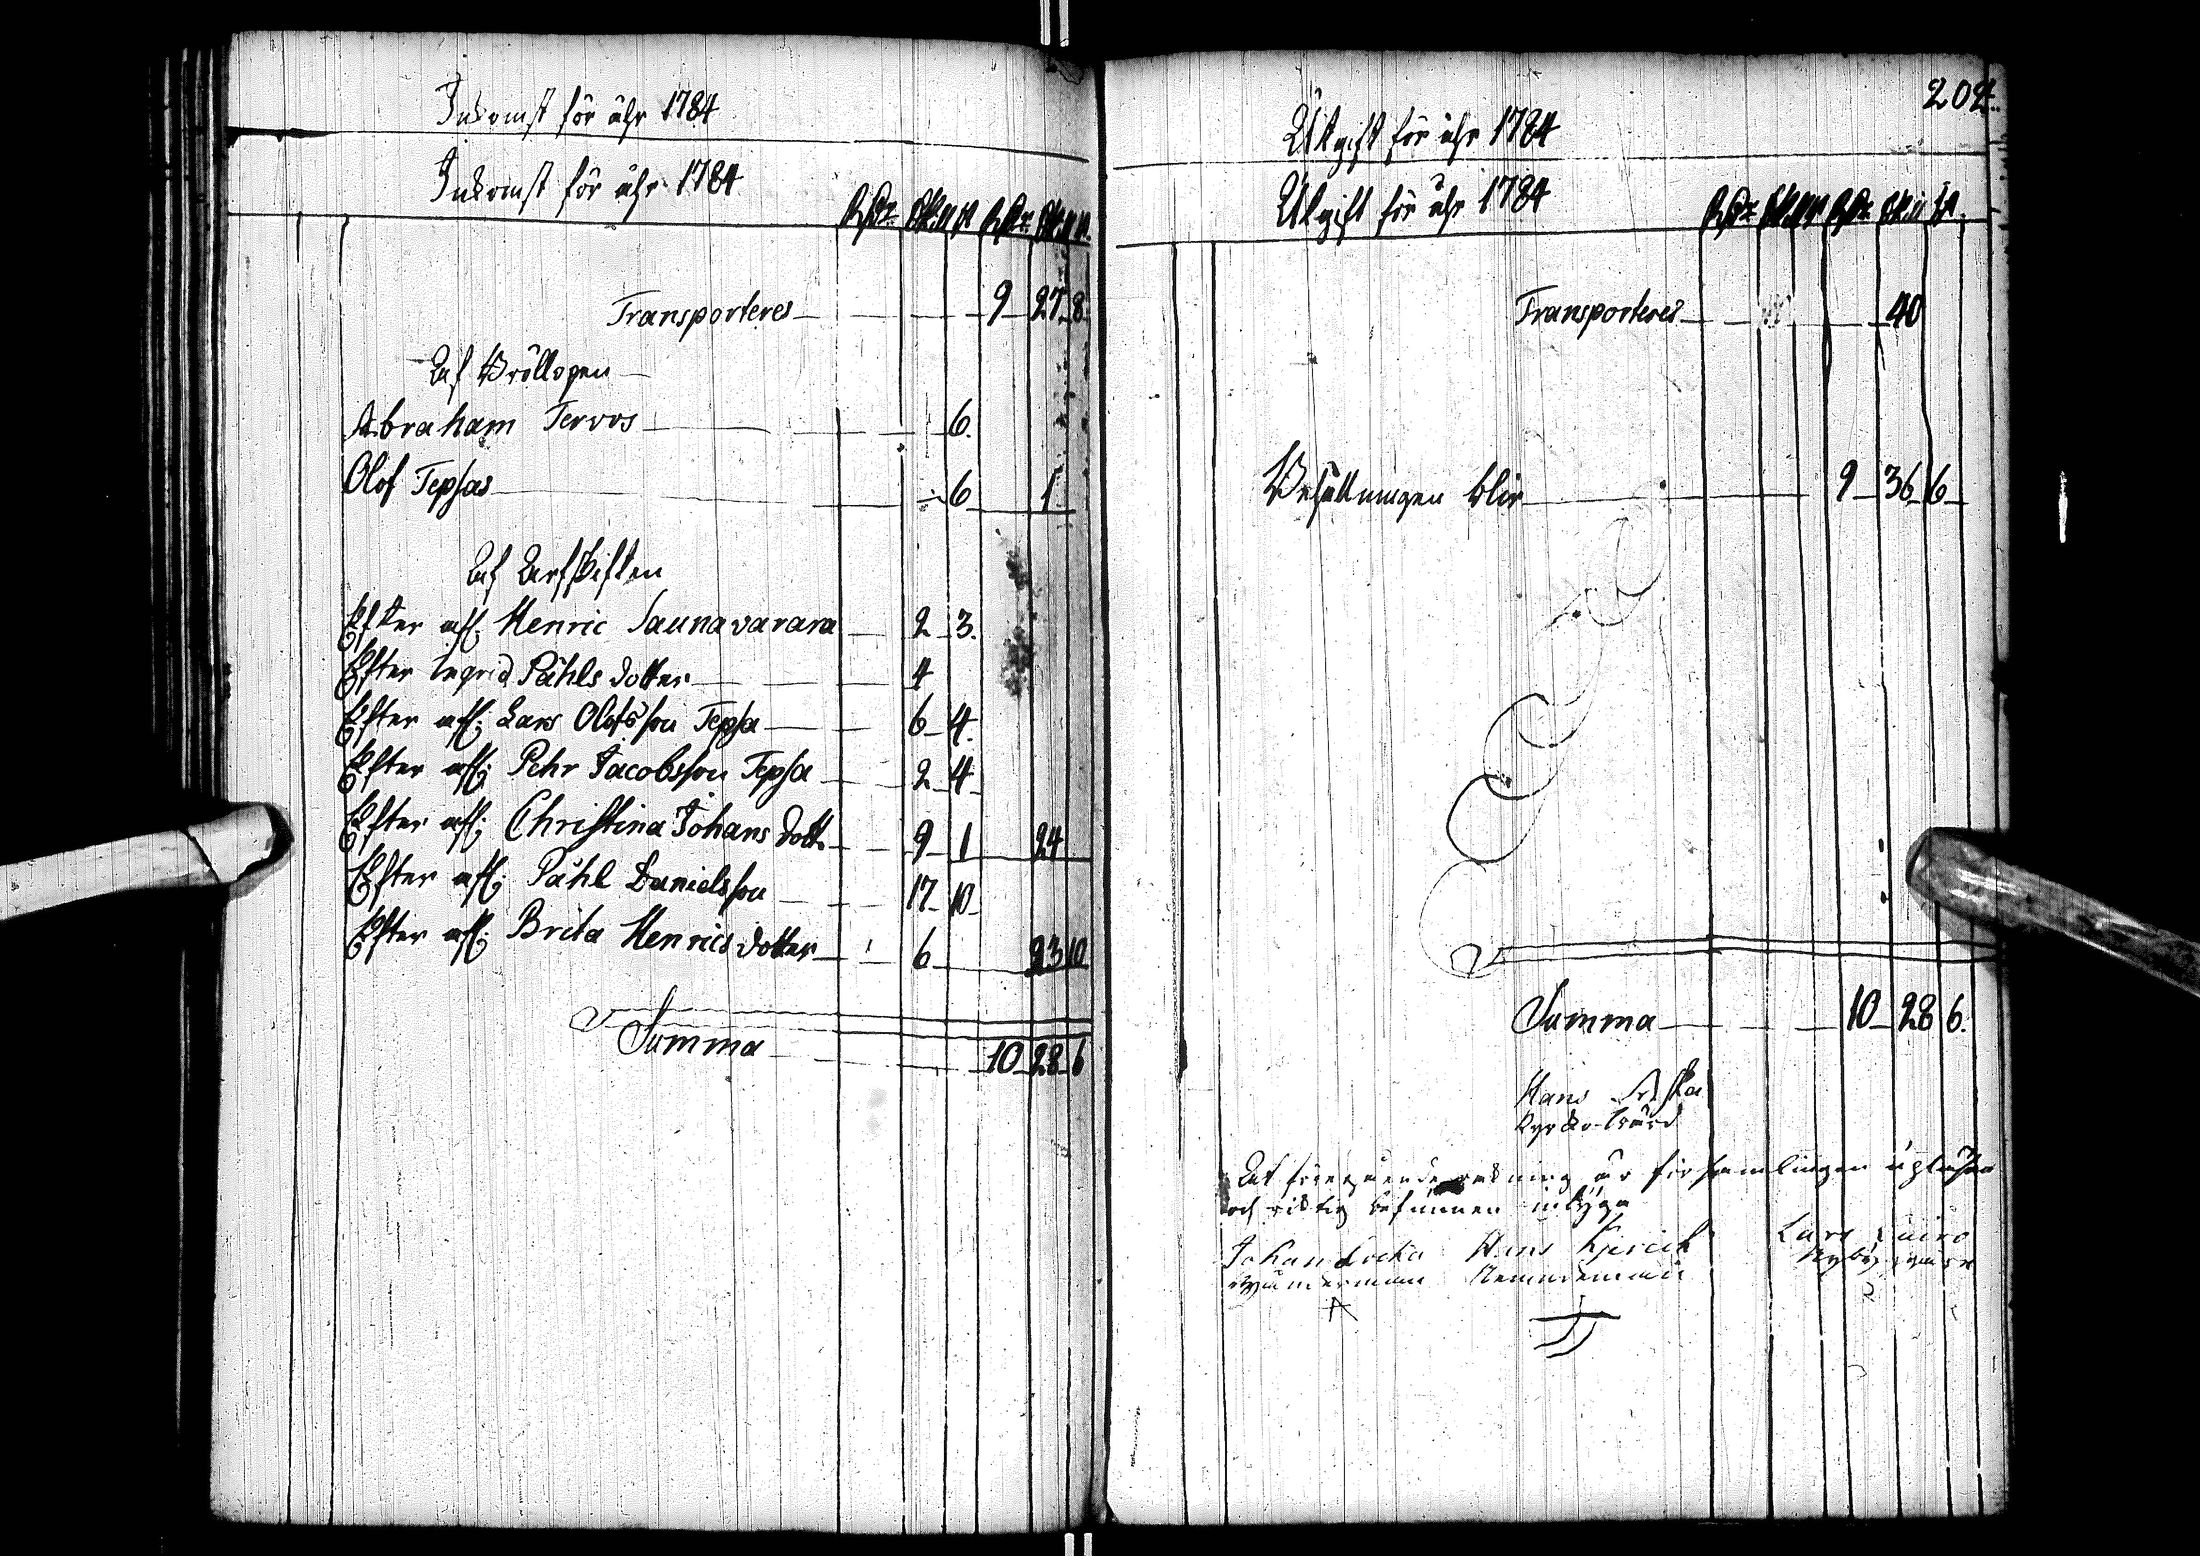 Inkomst för åhr 1784
Inkomst för åhr 1784
Rdr. Sk. rst Rdr. Sk. rst.
Transporteres 9 27 8
Af Bröllopen
Abraham Tervos 6.
Olof Tepsas 6 1
Af Arfskiften
Efter afl. Henric Saunavarara 2 3.
Efter Ingrid Påhls dotter 4
Efter afl. Lars Olofsson Tepsa 6 4.
Efter afl. Pehr Jacobsson Tepsa 2 4
Efter afl. Christina Johans dott. 9 1 24
Efter afl. Påhl Danielsson 17 10
Efter afl. Brita Henrics dotter 6 23 10
Summa 10 28 6
204.
Utgift för åhr 1784
Utgift för åhr 1784
Rdr. Sk. rst Rdr. Sk. rst.
Transporteres 40
Behållningen blir 9 36 6
Summa 10 28 6.
Hans
Kyrko-wärd
At föregående räkning är församlingen upläsen
och riktig befunnen intyga
Johan Hans Lars
Nemndeman